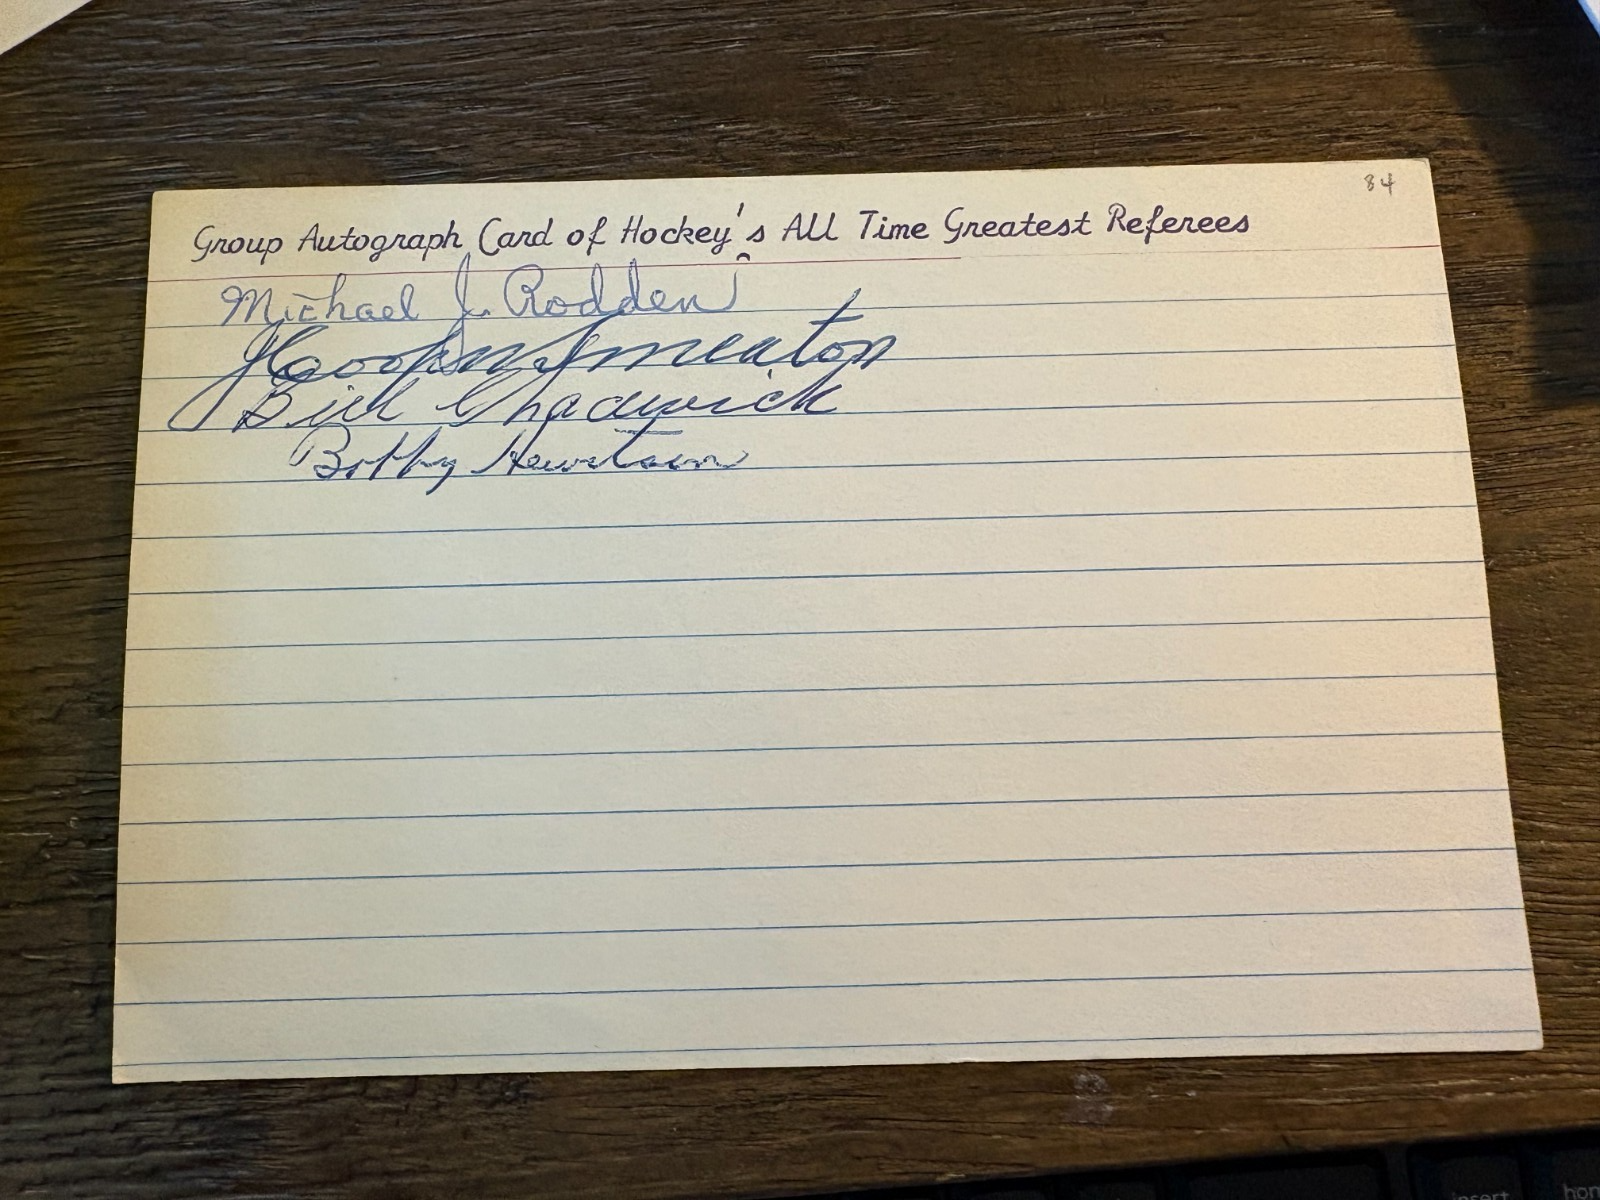 84
Group Autograph Card of Hockey's All Time Greatest Referees
Michael J. Rodden
J Cooper Smeaton
Bill Chadwick
Bobby Hewitson
insert
hom